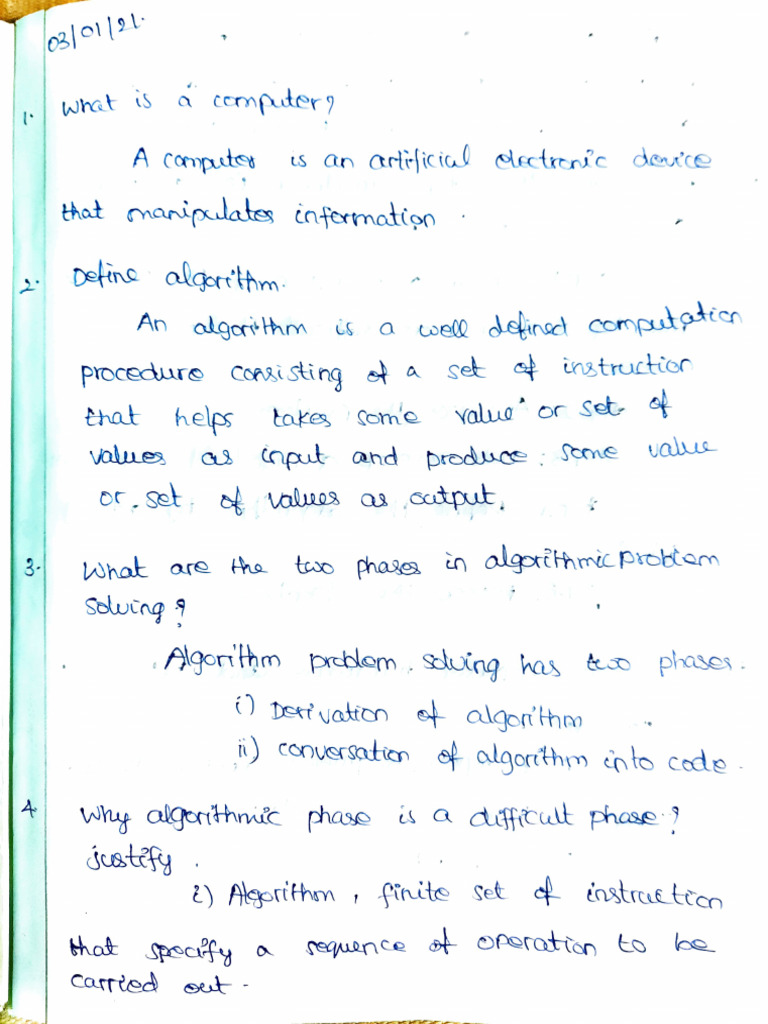 03/01/21.
1. What is a computer?
A computer is an artificial electronic device
that manipulates information.
2. Define algorithm.
An algorithm is a well defined computation
procedure consisting of a set of instruction
that helps takes some value or set of
values as input and produce some value
or set of values as output.
3. What are the two phases in algorithmic problem
solving?
Algorithm problem solving has two phases.
i) Derivation of algorithm
ii) conversation of algorithm into code.
4. Why algorithmic phase is a difficult phase?
justify.
i) Algorithm, finite set of instruction
that specify a sequence of operation to be
carried out.